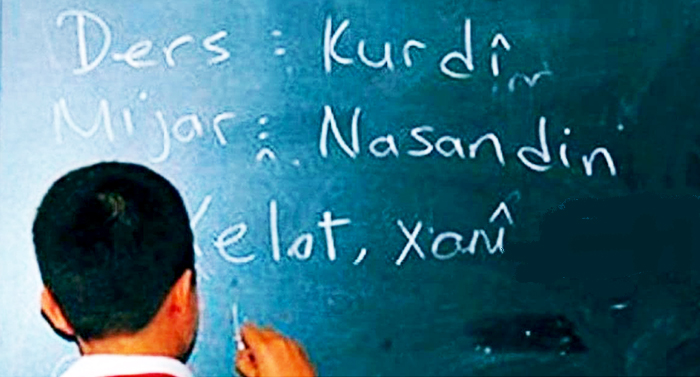 Ders : Kurdî
Mijar : Nasandin
Xelat, xanî